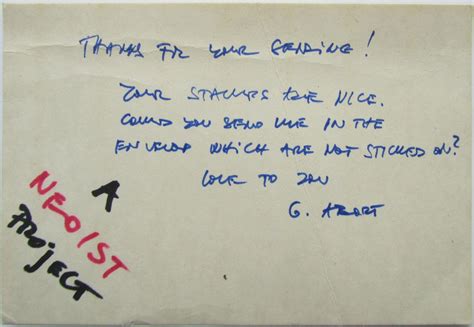 THANKS FOR YOUR SENDING!
YOUR STAMPS ARE NICE.
COULD YOU SEND ME IN THE
ENVELOP WHICH ARE NOT STICKED ON?
LOVE TO YOU
G. ABORT
A
NEOIST
PROJECT